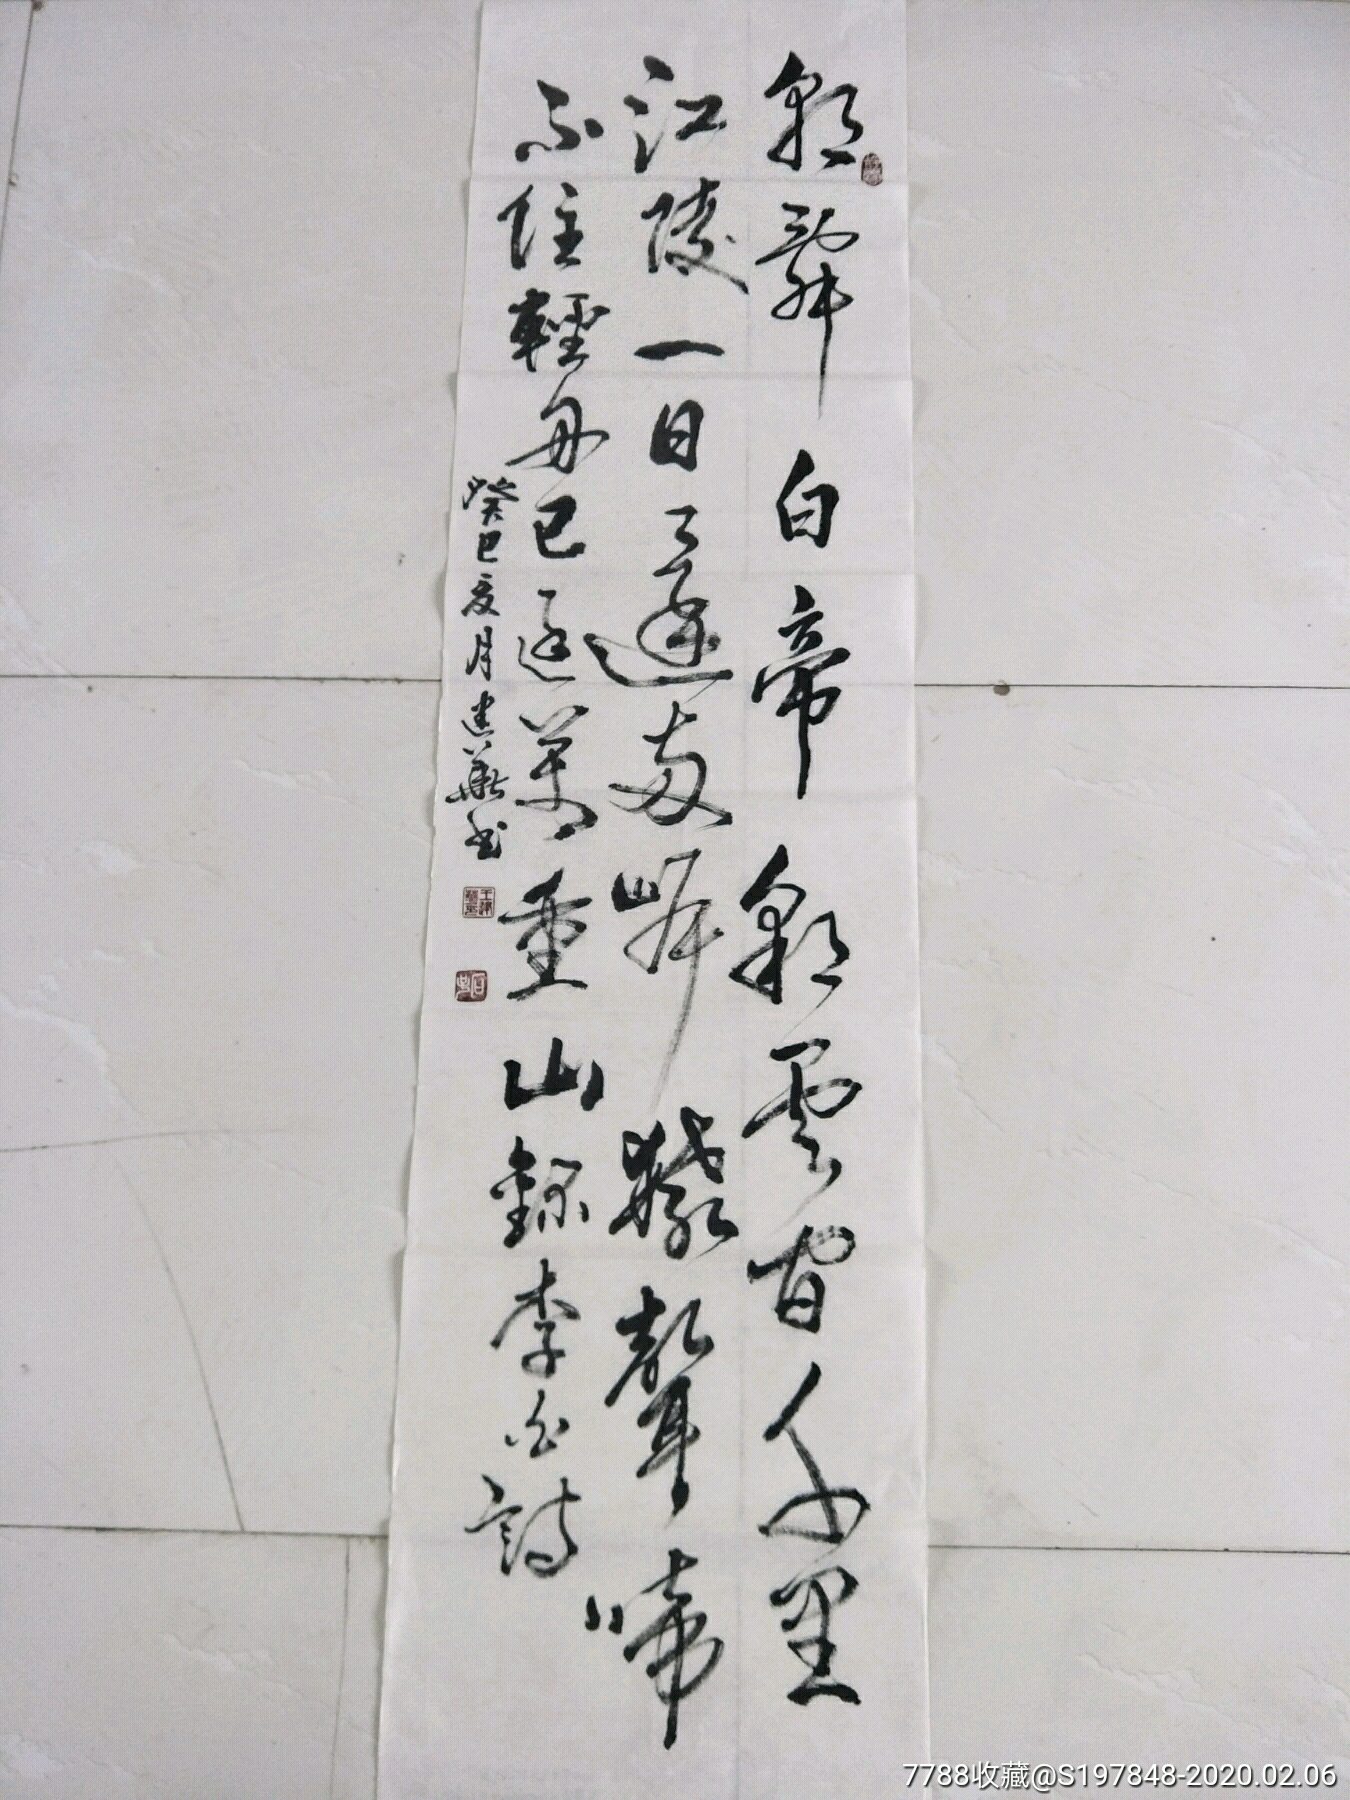 朝辭白帝朝雲間千里
江陵一日還兩岸聲啼
不住輕舟已過萬重山錄李白詩
癸巳夏月建華書
7788收藏@S197848-2020.02.06